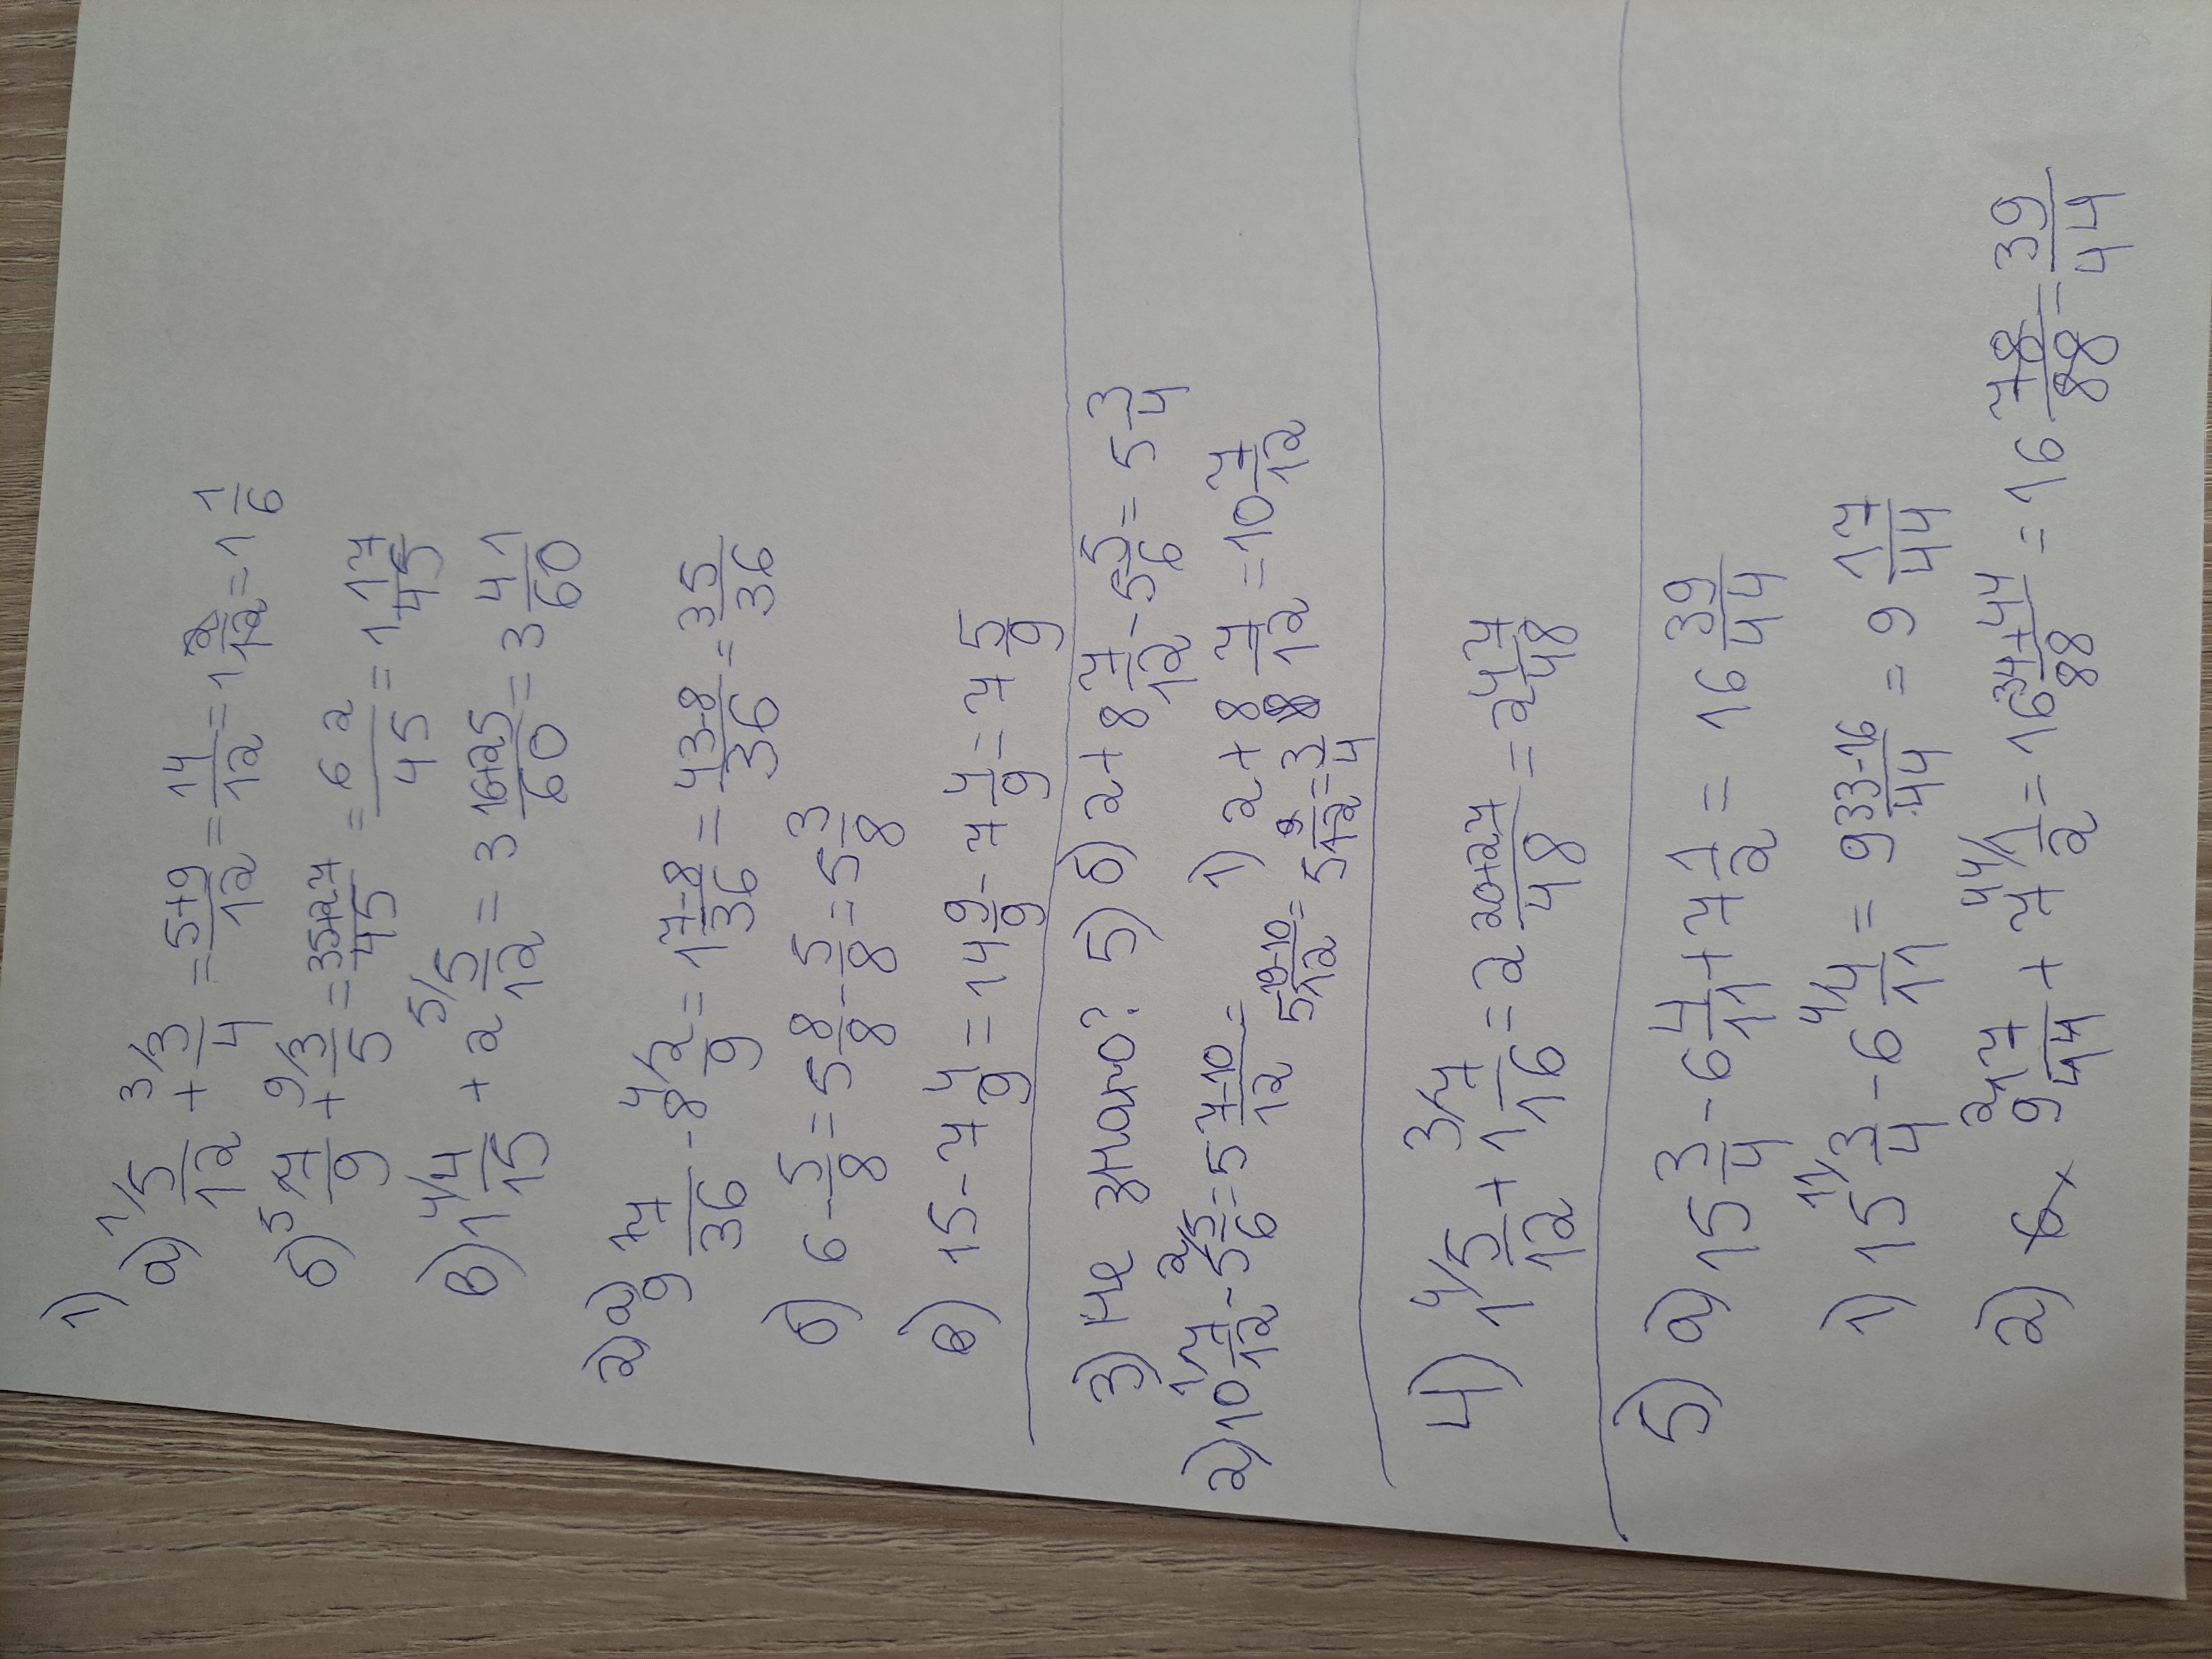 1)
а) 1/ 5/12 + 3/ 3/4 = 5+9/12 = 14/12 = 1 2/12 = 1 1/6
б) 5/ 7/9 + 9/ 3/5 = 35+27/45 = 62/45 = 1 17/45
в) 1 4/ 4/15 + 2 5/ 5/12 = 3 16+25/60 = 3 41/60
2) а) 9 7/36 - 8 4/ 2/9 = 1 7-8/36 = 43-8/36 = 35/36
б) 6 - 5/8 = 5 8/8 - 5/8 = 5 3/8
в) 15 - 7 4/9 = 14 9/9 - 7 4/9 = 7 5/9
3) не знаю? 5) б) 2 + 8 7/12 - 5 5/6 = 5 3/4
1) 2 + 8 7/12 = 10 7/12
2) 10 1/ 7/12 - 5 2/ 5/6 = 5 7-10/12 = 5 19-10/12 = 5 9/12 = 3/4
4) 1 4/ 5/12 + 1 3/ 7/16 = 2 20+27/48 = 2 47/48
5) а) 15 3/4 - 6 4/11 + 7 1/2 = 16 39/44
1) 15 11/ 3/4 - 6 4/ 4/11 = 9 33-16/44 = 9 17/44
2) 9 2/ 17/44 + 7 44/ 1/2 = 16 34+44/88 = 16 78/88 = 39/44